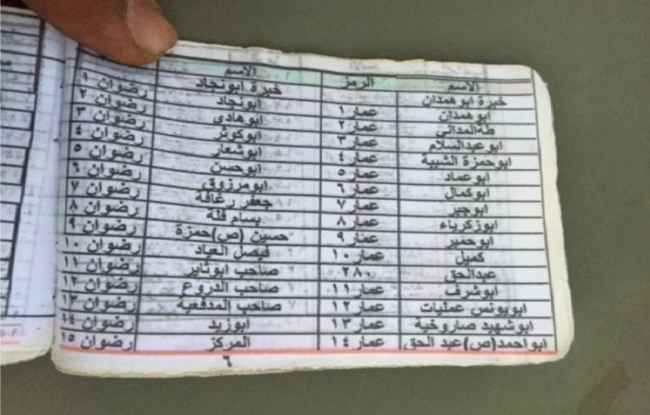 الاسم الرمز الاسم
خبرة ابو همدان خبرة ابونجاد رضوان ١
ابو همدان عمار ١ ابونجاد رضوان ٢
طه المداني عمار ٢ ابوهادي رضوان ٣
ابو عبدالسلام عمار ٣ ابوكوثر رضوان ٤
ابو حمزة الشيبة عمار ٤ ابوشعار رضوان ٥
ابو عماد عمار ٥ ابوحسن رضوان ٦
ابوكمال عمار ٦ ابومرزوق رضوان ٧
ابوجبر عمار ٧ جعفر رغافة رضوان ٨
ابوزكرياء عمار ٨ بسام فلة رضوان ٩
ابو حمير عمار ٩ حسين (ص) حمزة رضوان ١٠
كميل عمار ١٠ فيصل العياد رضوان ١١
عبدالحق ٢٨٠ صاحب ابوثاير رضوان ١٢
ابوشرف عمار ١١ صاحب الدروع رضوان ١٣
ابويونس عمليات عمار ١٢ صاحب المدفعية رضوان ١٤
ابوشهيد صاروخية عمار ١٣ ابوزيد رضوان ١٥
ابو احمد (ص) عبد الحق عمار ١٤ المركز
٦